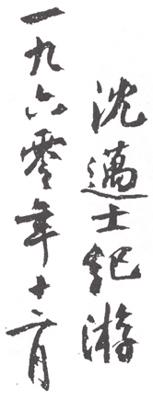 沈邁士紀游
一九六零年十二月